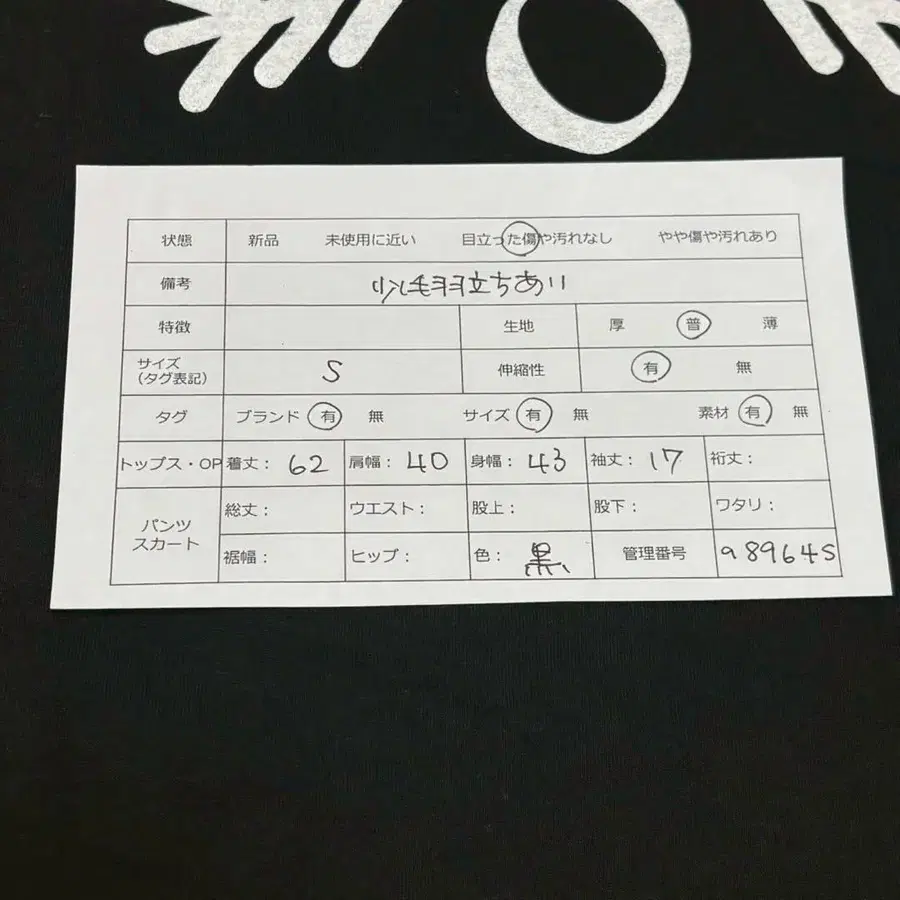 状態 新品 未使用に近い 目立った傷や汚れなし やや傷や汚れあり
備考 少し毛羽立ちあり
特徴 生地 厚 普 薄
サイズ
(タグ表記) S 伸縮性 有 無
タグ ブランド 有 無 サイズ 有 無 素材 有 無
トップス・OP 着丈: 62 肩幅: 40 身幅: 43 袖丈: 17 裄丈:
パンツ
スカート
総丈: ウエスト: 股上: 股下: ワタリ:
裾幅: ヒップ: 色: 黒 管理番号 a8964S